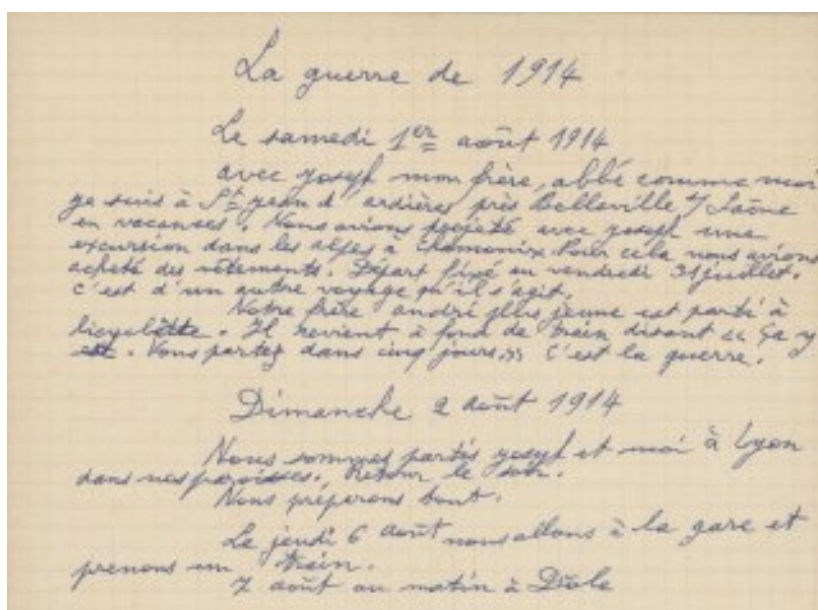 La guerre de 1914
Le samedi 1er août 1914
avec Joseph mon frère, abbé comme moi
je suis à St Jean d'ardières près Belleville s/ Saône
en vacances. Nous avions projeté avec Joseph une
excursion dans les alpes à Chamonix. Pour cela nous avions
acheté des vêtements. Départ fixé au vendredi 31 juillet.
C'est d'un autre voyage qu'il s'agit.
Notre frère andré plus jeune est parti à
bicyclette. Il revient à fond de train disant «Ça y
est. Vous partez dans cinq jours.» C'est la guerre.
Dimanche 2 août 1914
Nous sommes partis Joseph et moi à Lyon
dans nos paroisses. Retour le soir.
Nous préparons tout.
Le jeudi 6 août nous allons à la gare et
prenons un train.
7 août au matin à Dôle